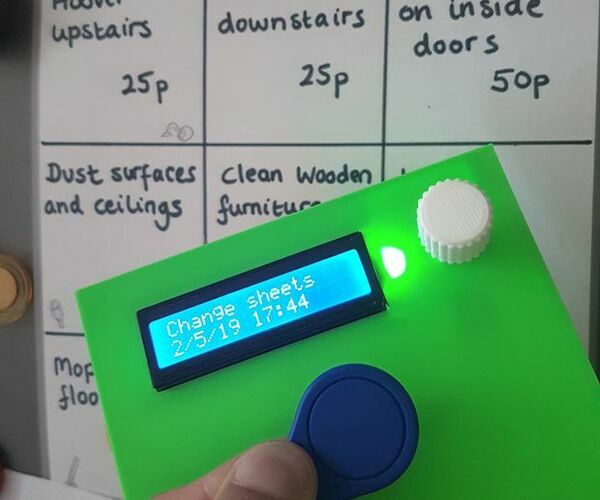 Hoover
upstairs
25p
downstairs
25p
on inside
doors
50p
Dust surfaces
and ceilings
Clean Wooden
furniture
Mop
floo
Change sheets
2/5/19 17:44